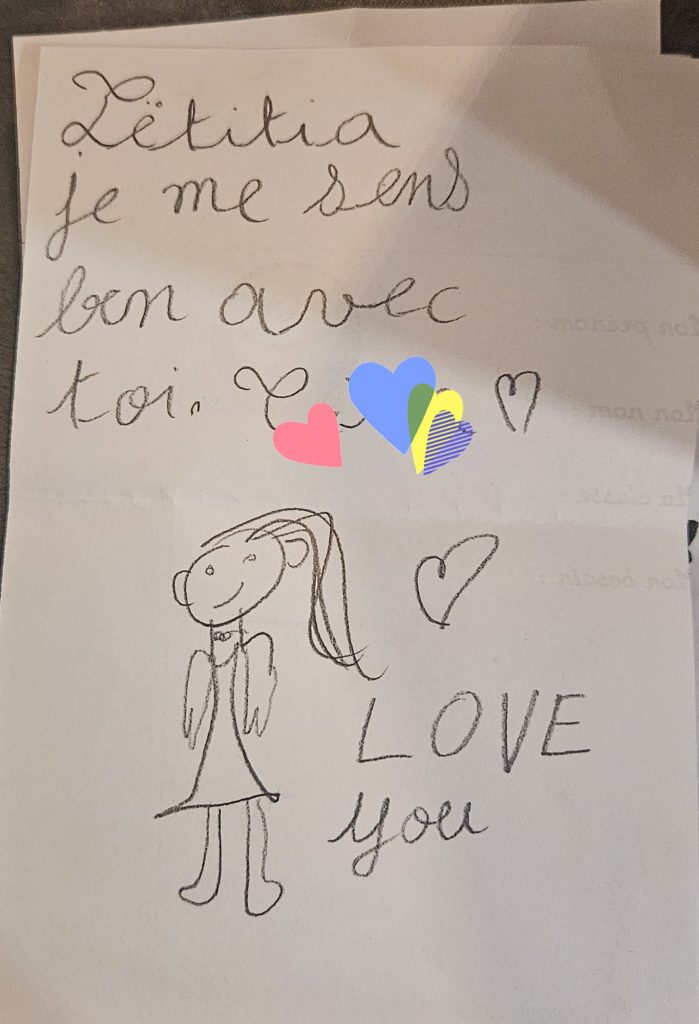 Lëtitia
je me sens
ben avec
toi.
LOVE
you